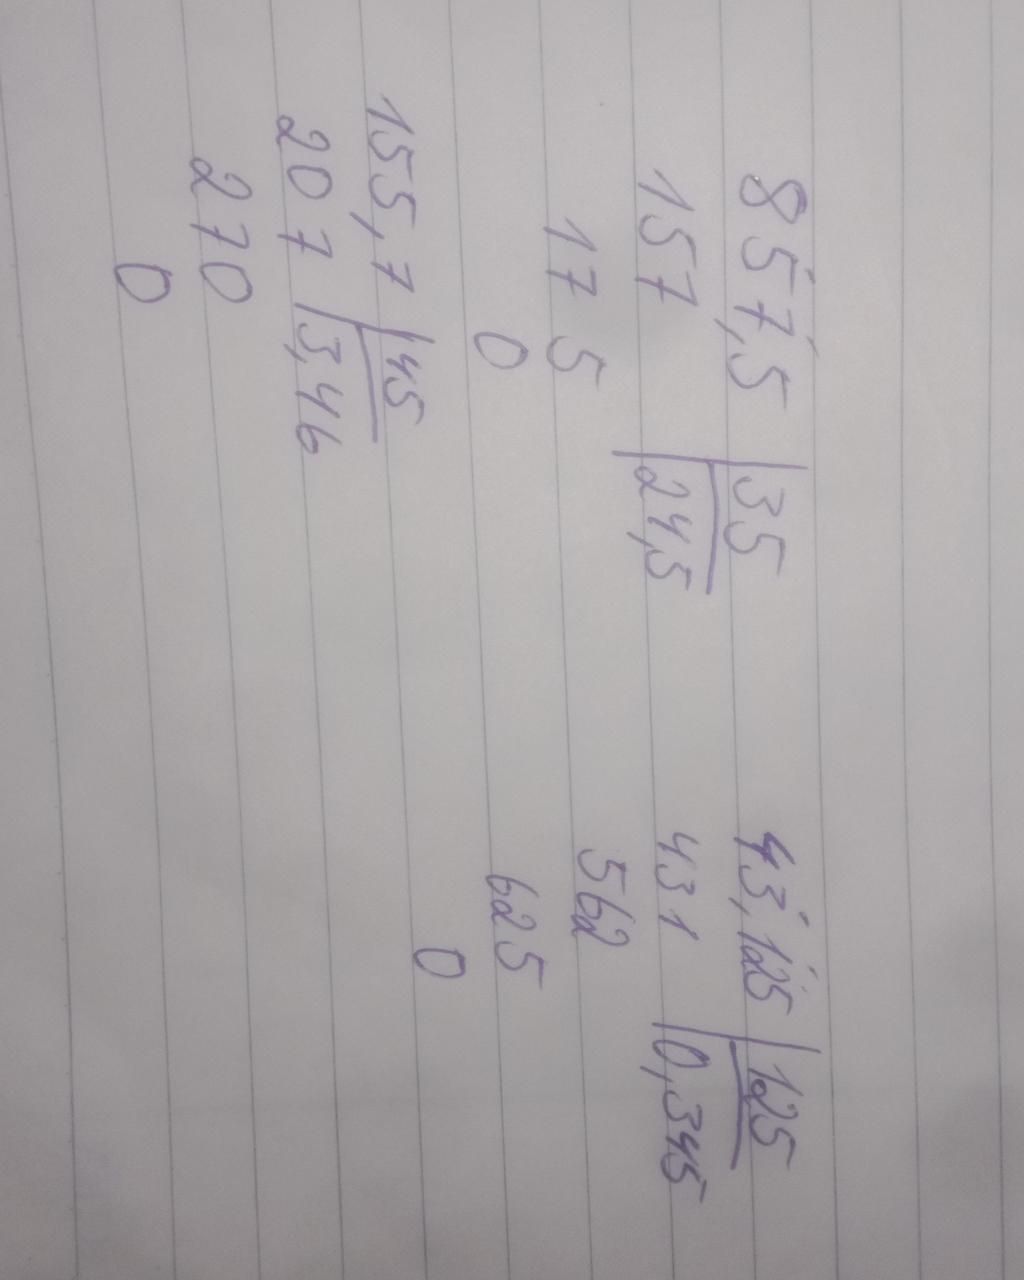 857,5 35
157 24,5
175
0
43,125 125
431 0,345
562
625
0
155,7 45
207 3,46
270
0